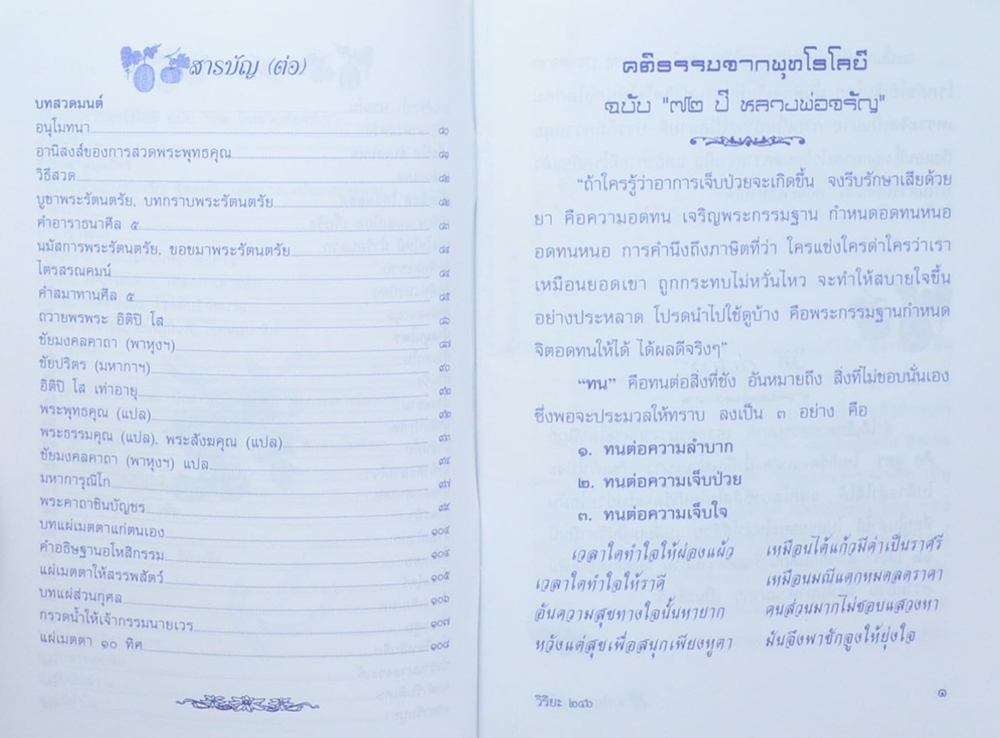 สารบัญ (ต่อ)
บทสวดมนต์
อนุโมทนา ๘๐
อานิสงส์ของการสวดพระพุทธคุณ ๘๑
วิธีสวด ๘๒
บูชาพระรัตนตรัย, บทกราบพระรัตนตรัย ๘๒
คำอาราธนาศีล ๕ ๘๓
นมัสการพระรัตนตรัย, ขอขมาพระรัตนตรัย ๘๔
ไตรสรณคมน์ ๘๔
คำสมาทานศีล ๕ ๘๕
ถวายพรพระ อิติปิ โส ๘๖
ชัยมงคลคาถา (พาหุงฯ) ๘๗
ชัยปริตร (มหากาฯ) ๙๐
อิติปิ โส เท่าอายุ ๙๒
พระพุทธคุณ (แปล) ๙๒
พระธรรมคุณ (แปล), พระสังฆคุณ (แปล) ๙๓
ชัยมงคลคาถา (พาหุงฯ) แปล ๙๔
มหาการุณิโก ๙๗
พระคาถาชินบัญชร ๙๙
บทแผ่เมตตาแก่ตนเอง ๑๐๔
คำอธิษฐานอโหสิกรรม ๑๐๔
แผ่เมตตาให้สรรพสัตว์ ๑๐๕
บทแผ่ส่วนกุศล ๑๐๖
กรวดน้ำให้เจ้ากรรมนายเวร ๑๐๗
แผ่เมตตา ๑๐ ทิศ ๑๐๘
คติธรรมจากพุทโธโลยี
ฉบับ "๗๒ ปี หลวงพ่อจรัญ"
"ถ้าใครรู้ว่าอาการเจ็บป่วยจะเกิดขึ้น จงรีบรักษาเสียด้วย
ยา คือความอดทน เจริญพระกรรมฐาน กำหนดอดทนหนอ
อดทนหนอ การคำนึงถึงภาษิตที่ว่า ใครแช่งใครด่าใครว่าเรา
เหมือนยอดเขา ถูกกระทบไม่หวั่นไหว จะทำให้สบายใจขึ้น
อย่างประหลาด โปรดนำไปใช้ดูบ้าง คือพระกรรมฐานกำหนด
จิตอดทนให้ได้ ได้ผลดีจริงๆ"
"ทน" คือทนต่อสิ่งที่ชัง อันหมายถึง สิ่งที่ไม่ชอบนั่นเอง
ซึ่งพอจะประมวลให้ทราบ ลงเป็น ๓ อย่าง คือ
๑. ทนต่อความลำบาก
๒. ทนต่อความเจ็บป่วย
๓. ทนต่อความเจ็บใจ
เวลาใดทำใจให้ผ่องแผ้ว เหมือนได้แก้วมีค่าเป็นราศรี
เวลาใดทำใจให้ราคี เหมือนมณีแตกหมดลดราคา
อันความสุขทางใจนั้นหายาก คนส่วนมากไม่ชอบแสวงหา
หวังแต่สุขเพื่อสนุกเพียงหูตา มันจึงพาชักจูงให้ยุ่งใจ
วิริยะ ๒๔๖ ๑